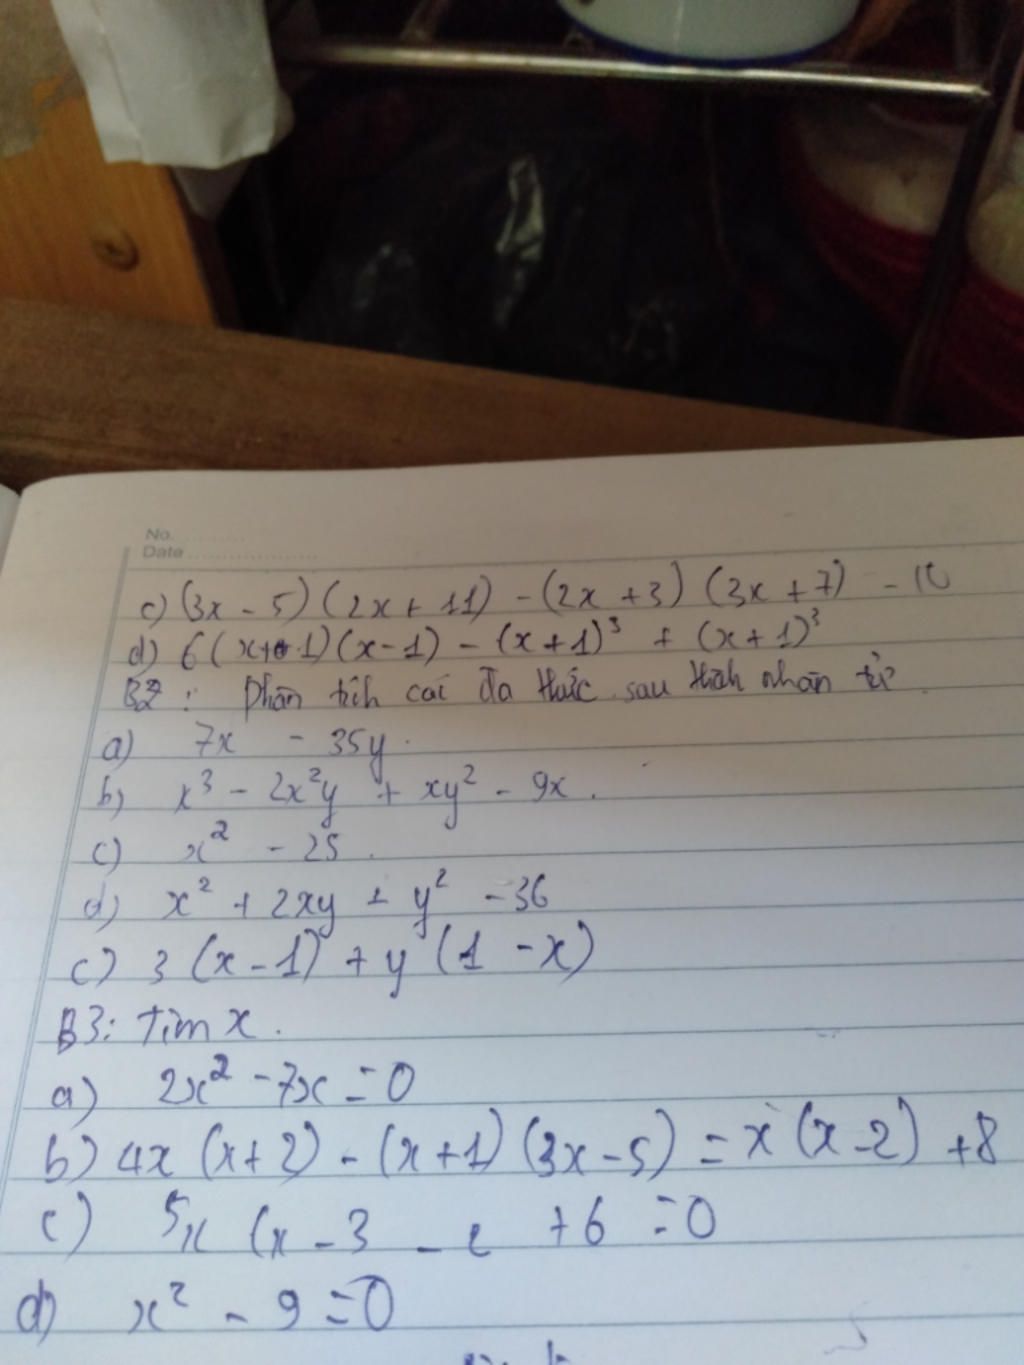 No.
Date
c) (3x - 5) (2x + 11) - (2x + 3) (3x + 7) - 10
d) 6(x+1)(x-1) - (x+1)³ + (x+1)³
B2 : phân tích cái đa thức sau thành nhân tử
a) 7x - 35y.
b) x³ - 2x²y + xy² - 9x.
c) x² - 25.
d) x² + 2xy + y² - 36
c) 3 (x-1) + y (1 - x)
B3: Tìm x.
a) 2x² - 7x = 0
b) 4x (x+2) - (x+1) (3x-5) = x (x-2) + 8
c) 5x (x - 3 - + 6 = 0
d) x² - 9 = 0